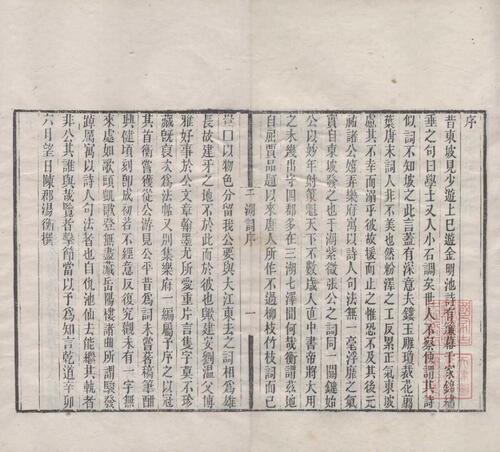 序
昔東坡見少游上巳遊金明池詩有簾幕千家錦繡
垂之句曰學士又入小石調矣世人不察便謂其詩
似詞不知坡之此言蓋有深意夫鏤玉雕瓊裁花翦
葉唐末詞人非不美也然粉澤之工反累正氣東坡
慮其不幸而溺乎彼故援而止之惟恐不及其後元
祐諸公嬉弄樂府寓以詩人句法無一毫浮靡之氣
實自東坡發之也于湖紫微張公之詞同一關鍵始
公以妙年射策魁天下不數歲入直中書帝將大用
之未幾出守四郡多在三湖七澤間何哉衡謂茲地
自屈賈品題以來唐人所作不過柳枝竹枝詞而已
于湖詞序 一
豈以物色分留我公要與大江東去之詞相爲雄
長故建牙之地不於此而於彼也歟建安劉溫父博
雅好事於公文章翰墨尤所愛重片言隻字莫不珍
藏旣裒次爲法帖又別集樂府一編屬予序之以冠
其首衡嘗獲從公游見公平昔爲詞未嘗著稿筆酣
興健頃刻卽成初若不經意反復究觀未有一字無
來處如歌頭凱歌登無盡藏岳陽樓諸曲所謂駿發
踔厲寓以詩人句法者也自仇池仙去能繼其軌者
非公其誰與哉覽者擊節當以予爲知言乾道辛卯
六月望日陳郡湯衡撰